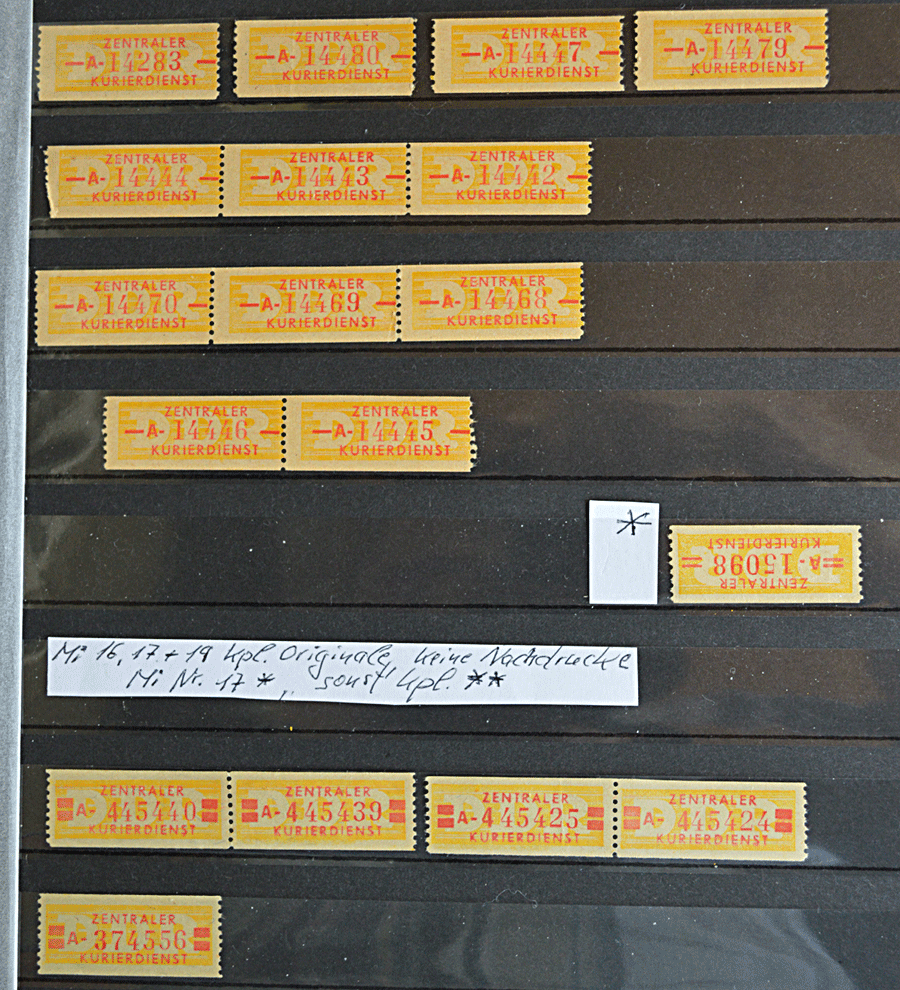 ZENTRALER ZENTRALER ZENTRALER ZENTRALER
A-14283 A-14480 A-14447 A-14479
KURIERDIENST KURIERDIENST KURIERDIENST KURIERDIENST
ZENTRALER ZENTRALER ZENTRALER
A-14444 A-14443 A-14442
KURIERDIENST KURIERDIENST KURIERDIENST
ZENTRALER ZENTRALER ZENTRALER
A-14470 A-14469 A-14468
KURIERDIENST KURIERDIENST KURIERDIENST
ZENTRALER ZENTRALER
A-14446 A-14445
KURIERDIENST KURIERDIENST
*
ZENTRALER
A-15098
KURIERDIENST
Mi 16, 17 + 19 kpl. Originale, keine Nachdrucke
Mi Nr. 17 *, sonst kpl. **
ZENTRALER ZENTRALER ZENTRALER ZENTRALER
A-445440 A-445439 A-445425 A-445424
KURIERDIENST KURIERDIENST KURIERDIENST KURIERDIENST
ZENTRALER
A-374556
KURIERDIENST